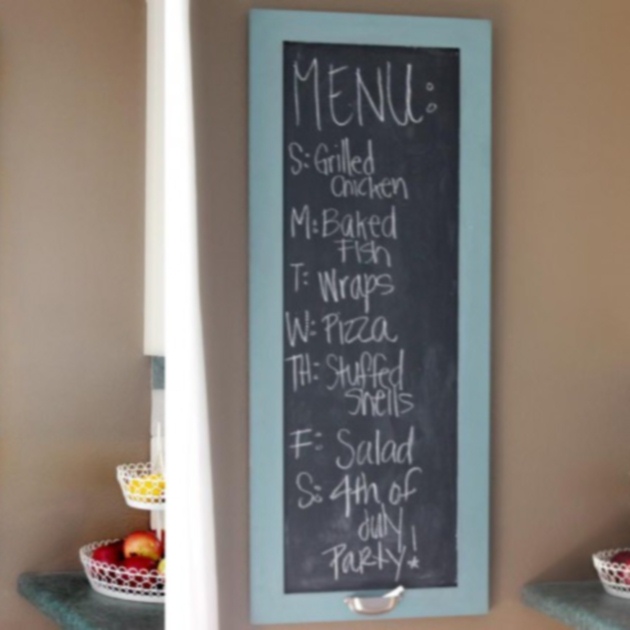 MENU:
S: Grilled
Chicken
M: Baked
Fish
T: Wraps
W: Pizza
TH: Stuffed
Shells
F: Salad
S: 4th of
July
Party!